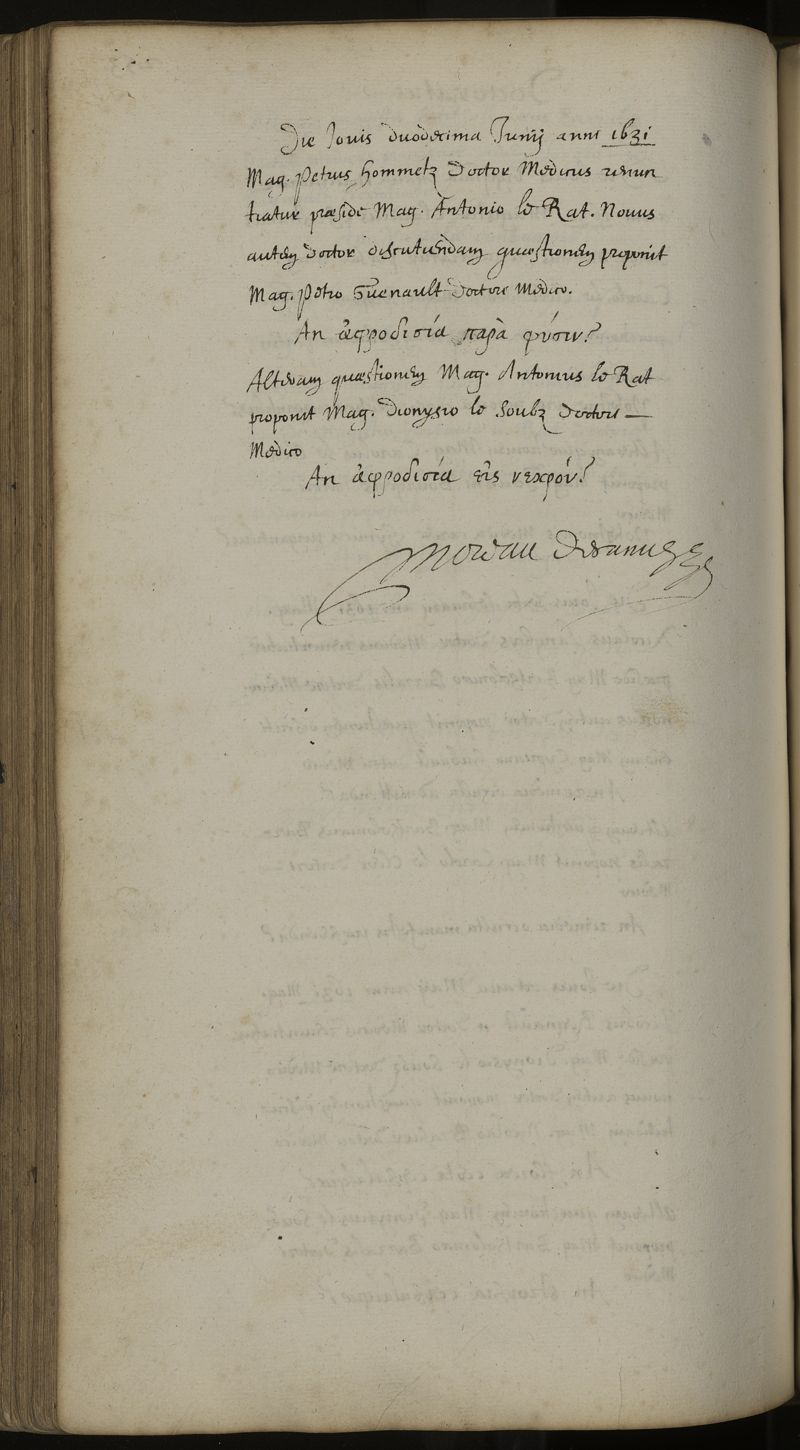 Die Jovis duodecima Junij anni 1631
Mag. Petrus Hommetz Doctor Medicus renun
tiatur præside Mag. Antonio le Rat. Novus
autem Doctor discutiendam quæstionem proponit
Mag. Petro Guenault Doctore Medico.
An ἀφροδισία παρὰ φύσιν?
Alteram quæstionem Mag. Antonius le Rat
proponit Mag. Dionysio le Soubz Doctori —
Medico
An ἀφροδισία εἰς νεκρόν?
Moreau Decanus